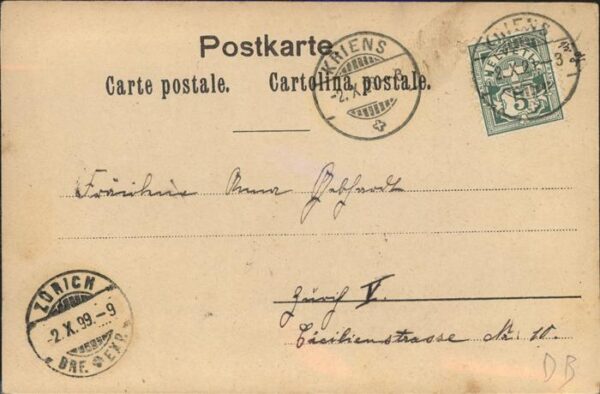 Postkarte.
Carte postale. Cartolina postale.
KRIENS
-2.X.
KRIENS
2.X.99
HELVETIA
5
Fräulein Anna Gebhardt
Zürich V.
Cäcilienstrasse Nr. 10.
ZÜRICH
-2.X.99.-9
BRF. EXP.
DB